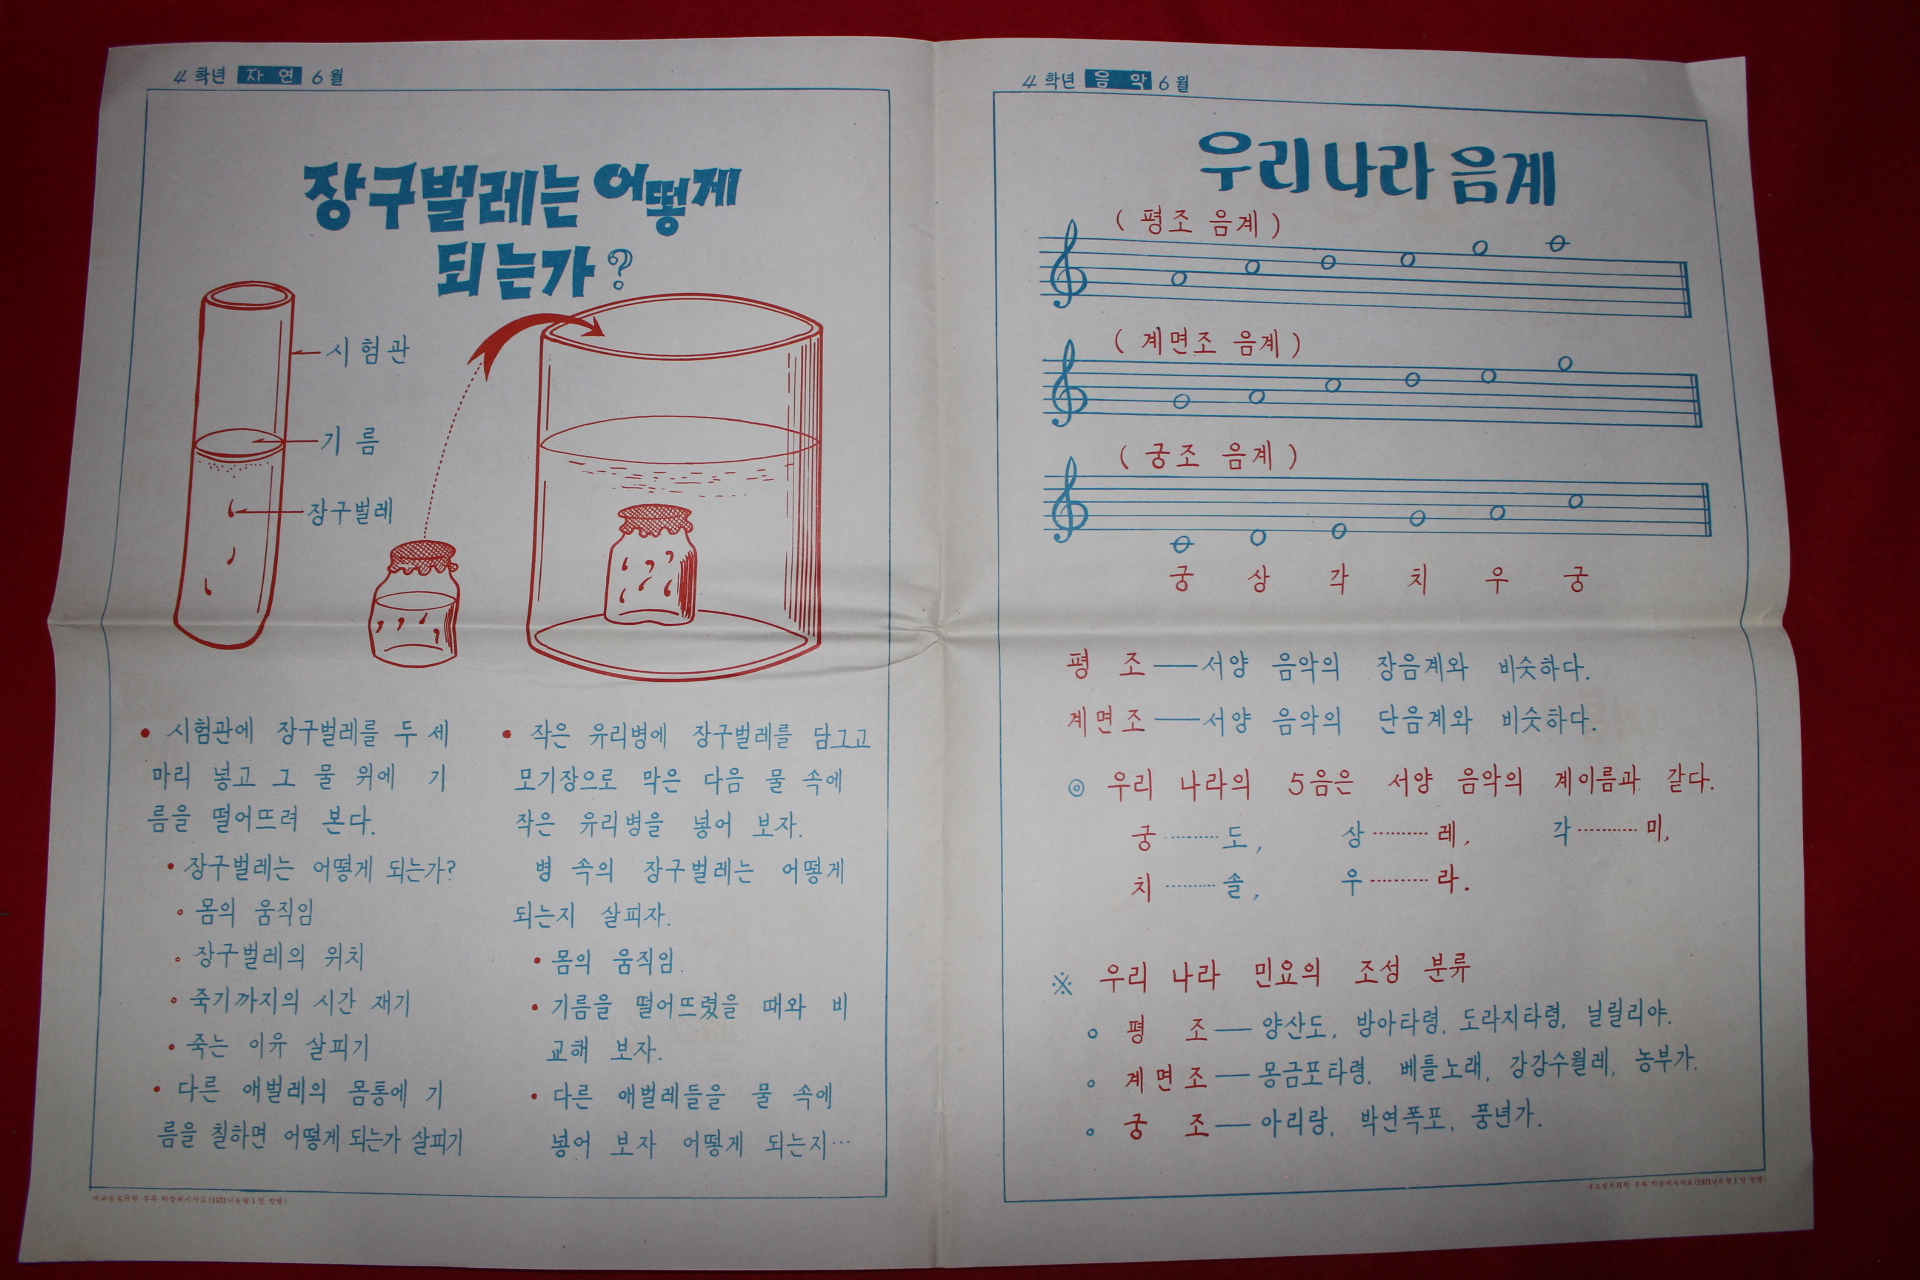 4 학년 자 연 6 월
장구벌레는 어떻게
되는가?
시험관
기 름
장구벌레
• 시험관에 장구벌레를 두 세
마리 넣고 그 물 위에 기
름을 떨어뜨려 본다.
• 장구벌레는 어떻게 되는가?
◦ 몸의 움직임
◦ 장구벌레의 위치
◦ 죽기까지의 시간 재기
• 죽는 이유 살피기
• 다른 애벌레의 몸통에 기
름을 칠하면 어떻게 되는가 살피기
• 작은 유리병에 장구벌레를 담그고
모기장으로 막은 다음 물 속에
작은 유리병을 넣어 보자.
병 속의 장구벌레는 어떻게
되는지 살피자.
• 몸의 움직임.
• 기름을 떨어뜨렸을 때와 비
교해 보자.
• 다른 애벌레들을 물 속에
넣어 보자 어떻게 되는지…
4 학년 음 악 6 월
우리 나라 음계
( 평조 음계 )
( 계면조 음계 )
( 궁조 음계 )
궁 상 각 치 우 궁
평 조 — 서양 음악의 장음계와 비슷하다.
계면조 — 서양 음악의 단음계와 비슷하다.
◎ 우리 나라의 5음은 서양 음악의 계이름과 같다.
궁 ……… 도, 상 ……… 레, 각 ……… 미,
치 ……… 솔, 우 ……… 라.
※ 우리 나라 민요의 조성 분류
○ 평 조 — 양산도, 방아타령, 도라지타령, 닐릴리야.
○ 계면조 — 몽금포타령, 베틀노래, 강강수월레, 농부가.
○ 궁 조 — 아리랑, 박연폭포, 풍년가.
(1971년 6월 1일 발행)
(1971년 6월 1일 발행)